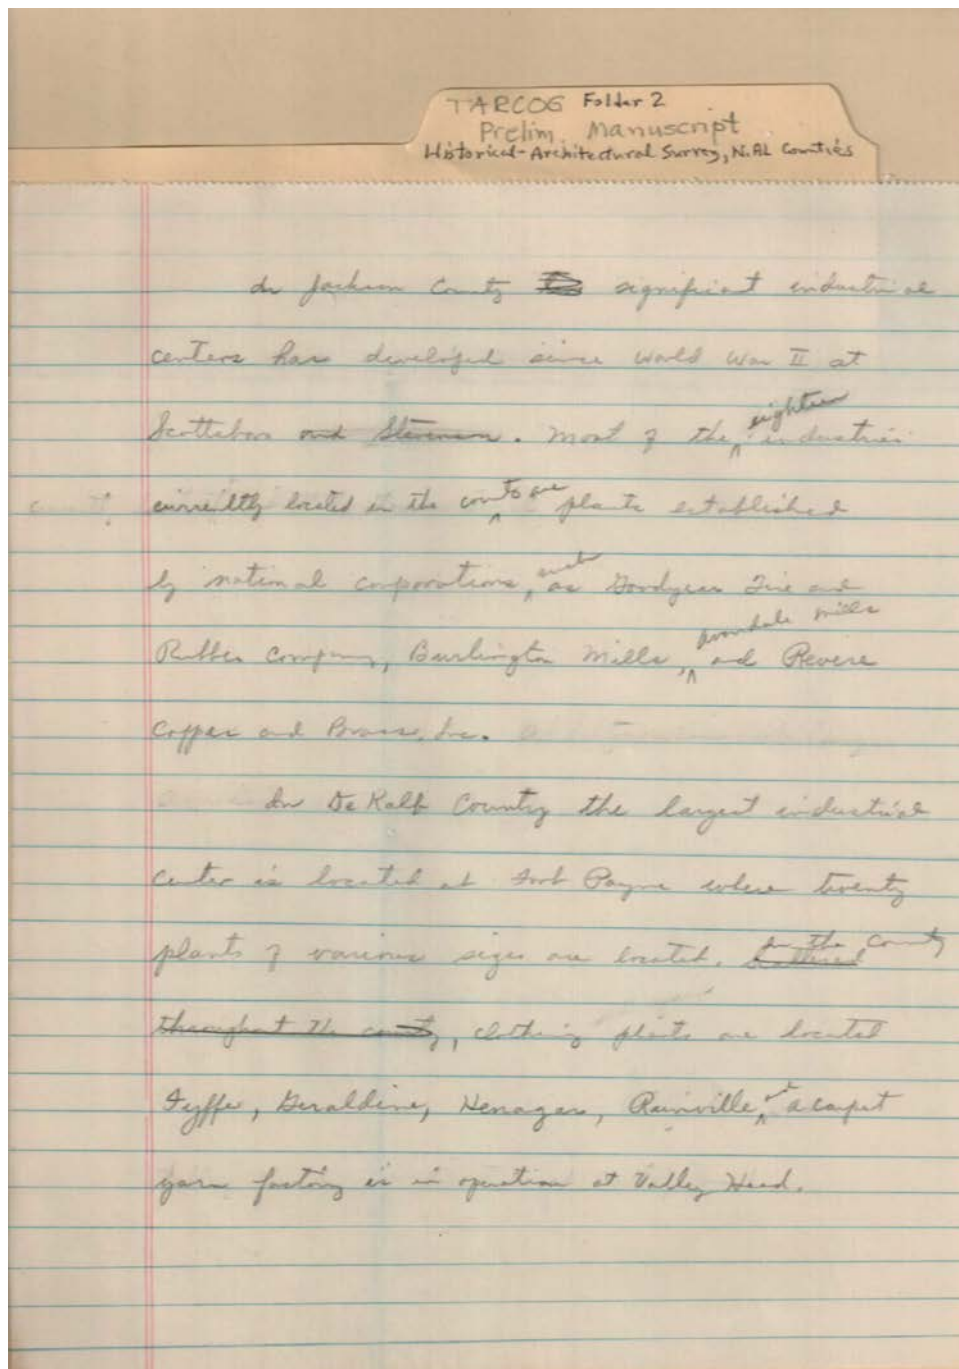 TARCOG Folder 2
Prelim. Manuscript
Historical-Architectural Survey, N. AL Counties
In Jackson County significant industrial
centers has developed since World War II at
Scottsboro and Stevenson. Most of the eighteen industries
currently located in the county are plants established
by national corporations, such as Goodyear Tire and
Rubber Company, Burlington Mills, Avondale Mills and Revere
Copper and Brass, Inc.
In DeKalb County the largest industrial
center is located at Fort Payne where twenty
plants of various sizes are located. In the County
throughout the county, clothing plants are located
Fyffe, Geraldine, Henagar, Rainville, and a carpet
yarn factory is in operation at Valley Head.